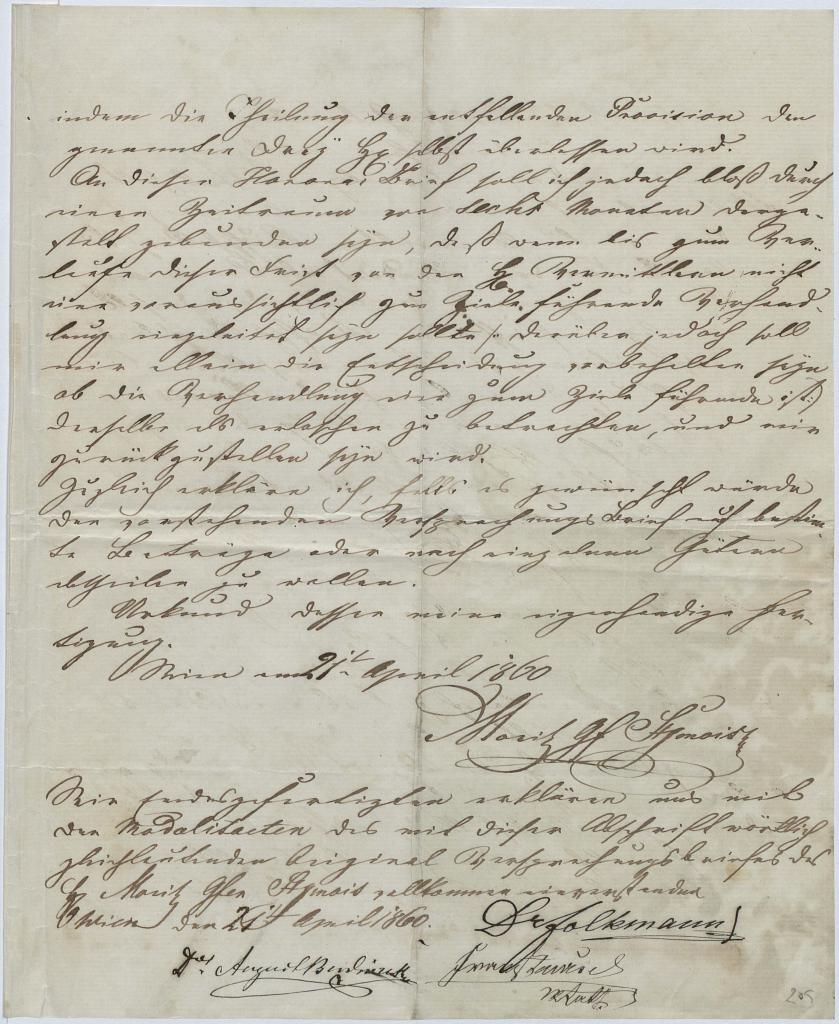 indem die Theilung der entfallenden Provision den
genannten Drey H selbst überlassen wird.
An diesen Honorar Brief soll ich jedoch bloß durch
einen Zeitraum von sechs Monaten derge-
stalt gebunden seyn, daß wenn bis zum Ver-
laufe dieser Frist von den H Vermittlern nicht
eine voraussichtlich zum Ziele führende Verhand-
lung eingeleitet seyn sollte /: darüber jedoch soll
mir allein die Entscheidung vorbehalten seyn
ob die Verhandlung eine zum Ziele führende ist :/
derselbe als erloschen zu betrachten, und mir
zurückzustellen seyn wird.
Zugleich erkläre ich, falls es gewünscht würde
den vorstehenden Versprechungs Brief auf bestim-
te Beträge oder nach einzelnen Gütern
abtheilen zu wollen.
Urkund dessen meine eigenhändige Fer-
tigung.
Wien am 21t April 1860
Moritz Gf
Wir Endesgefertigten erklären uns mit
den Modalitaeten des mit dieser Abschrift wörtlich
gleichlautenden Original Versprechungsbriefes des
H Moritz Gfen vollkommen einverstanden
Wien den 21t April 1860.
Dr Folkmann
Dor August
Franz
205